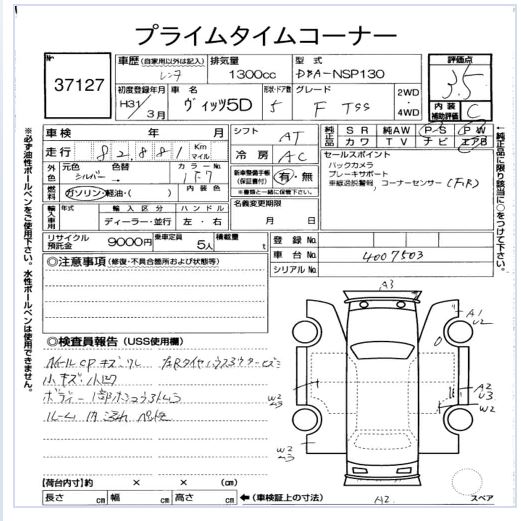 プライムタイムコーナー
No.
37127
車歴 (自家用以外は記入)
レンタ
排気量
1300cc
型式
DBA-NSP130
評価点
3.5
初度登録年月
H31/3月
車名
ヴィッツ5D
形状・ドア数
5
グレード
F TSS
2WD
・
4WD
内装
補助評価
C
車検 年 月
走行 82,881 Km
マイル
シフト
AT
冷房
AC
純正品
SR 純AW P・S P・W
カワ TV ナビ エアB
セールスポイント
バックカメラ
ブレーキサポート
車線逸脱警報、コーナーセンサー(F,R)
外色
元色
シルバー
色替
カラーNo.
1F7
燃料
ガソリン・軽油・( )
内装色
新車整備手帳
(保証書付)
有・無
※書類と一緒に保管して下さい。
名義変更期限
月 日
輸入車用
年式
輸入区分
ディーラー・並行
ハンドル
左・右
リサイクル
預託金
9000円
乗車定員
5人
積載量
t
登録No.
車台No.
4007503
シリアルNo.
※必ず油性ボールペンをご使用下さい。水性ボールペンは使用できません。
←純正品に限り該当に○をつけて下さい。
◎注意事項 (修復・不具合箇所および状態等)
◎検査員報告 (USS使用欄)
ホイールCPキズ
小キズ小凹
ボディー
ルーム内
A3
A1
U2
A2
U3
W2
W2
W2
A2
【荷台内寸】約 × × (cm)
長さ cm 幅 cm 高さ cm
←(車検証上の寸法)
スペア